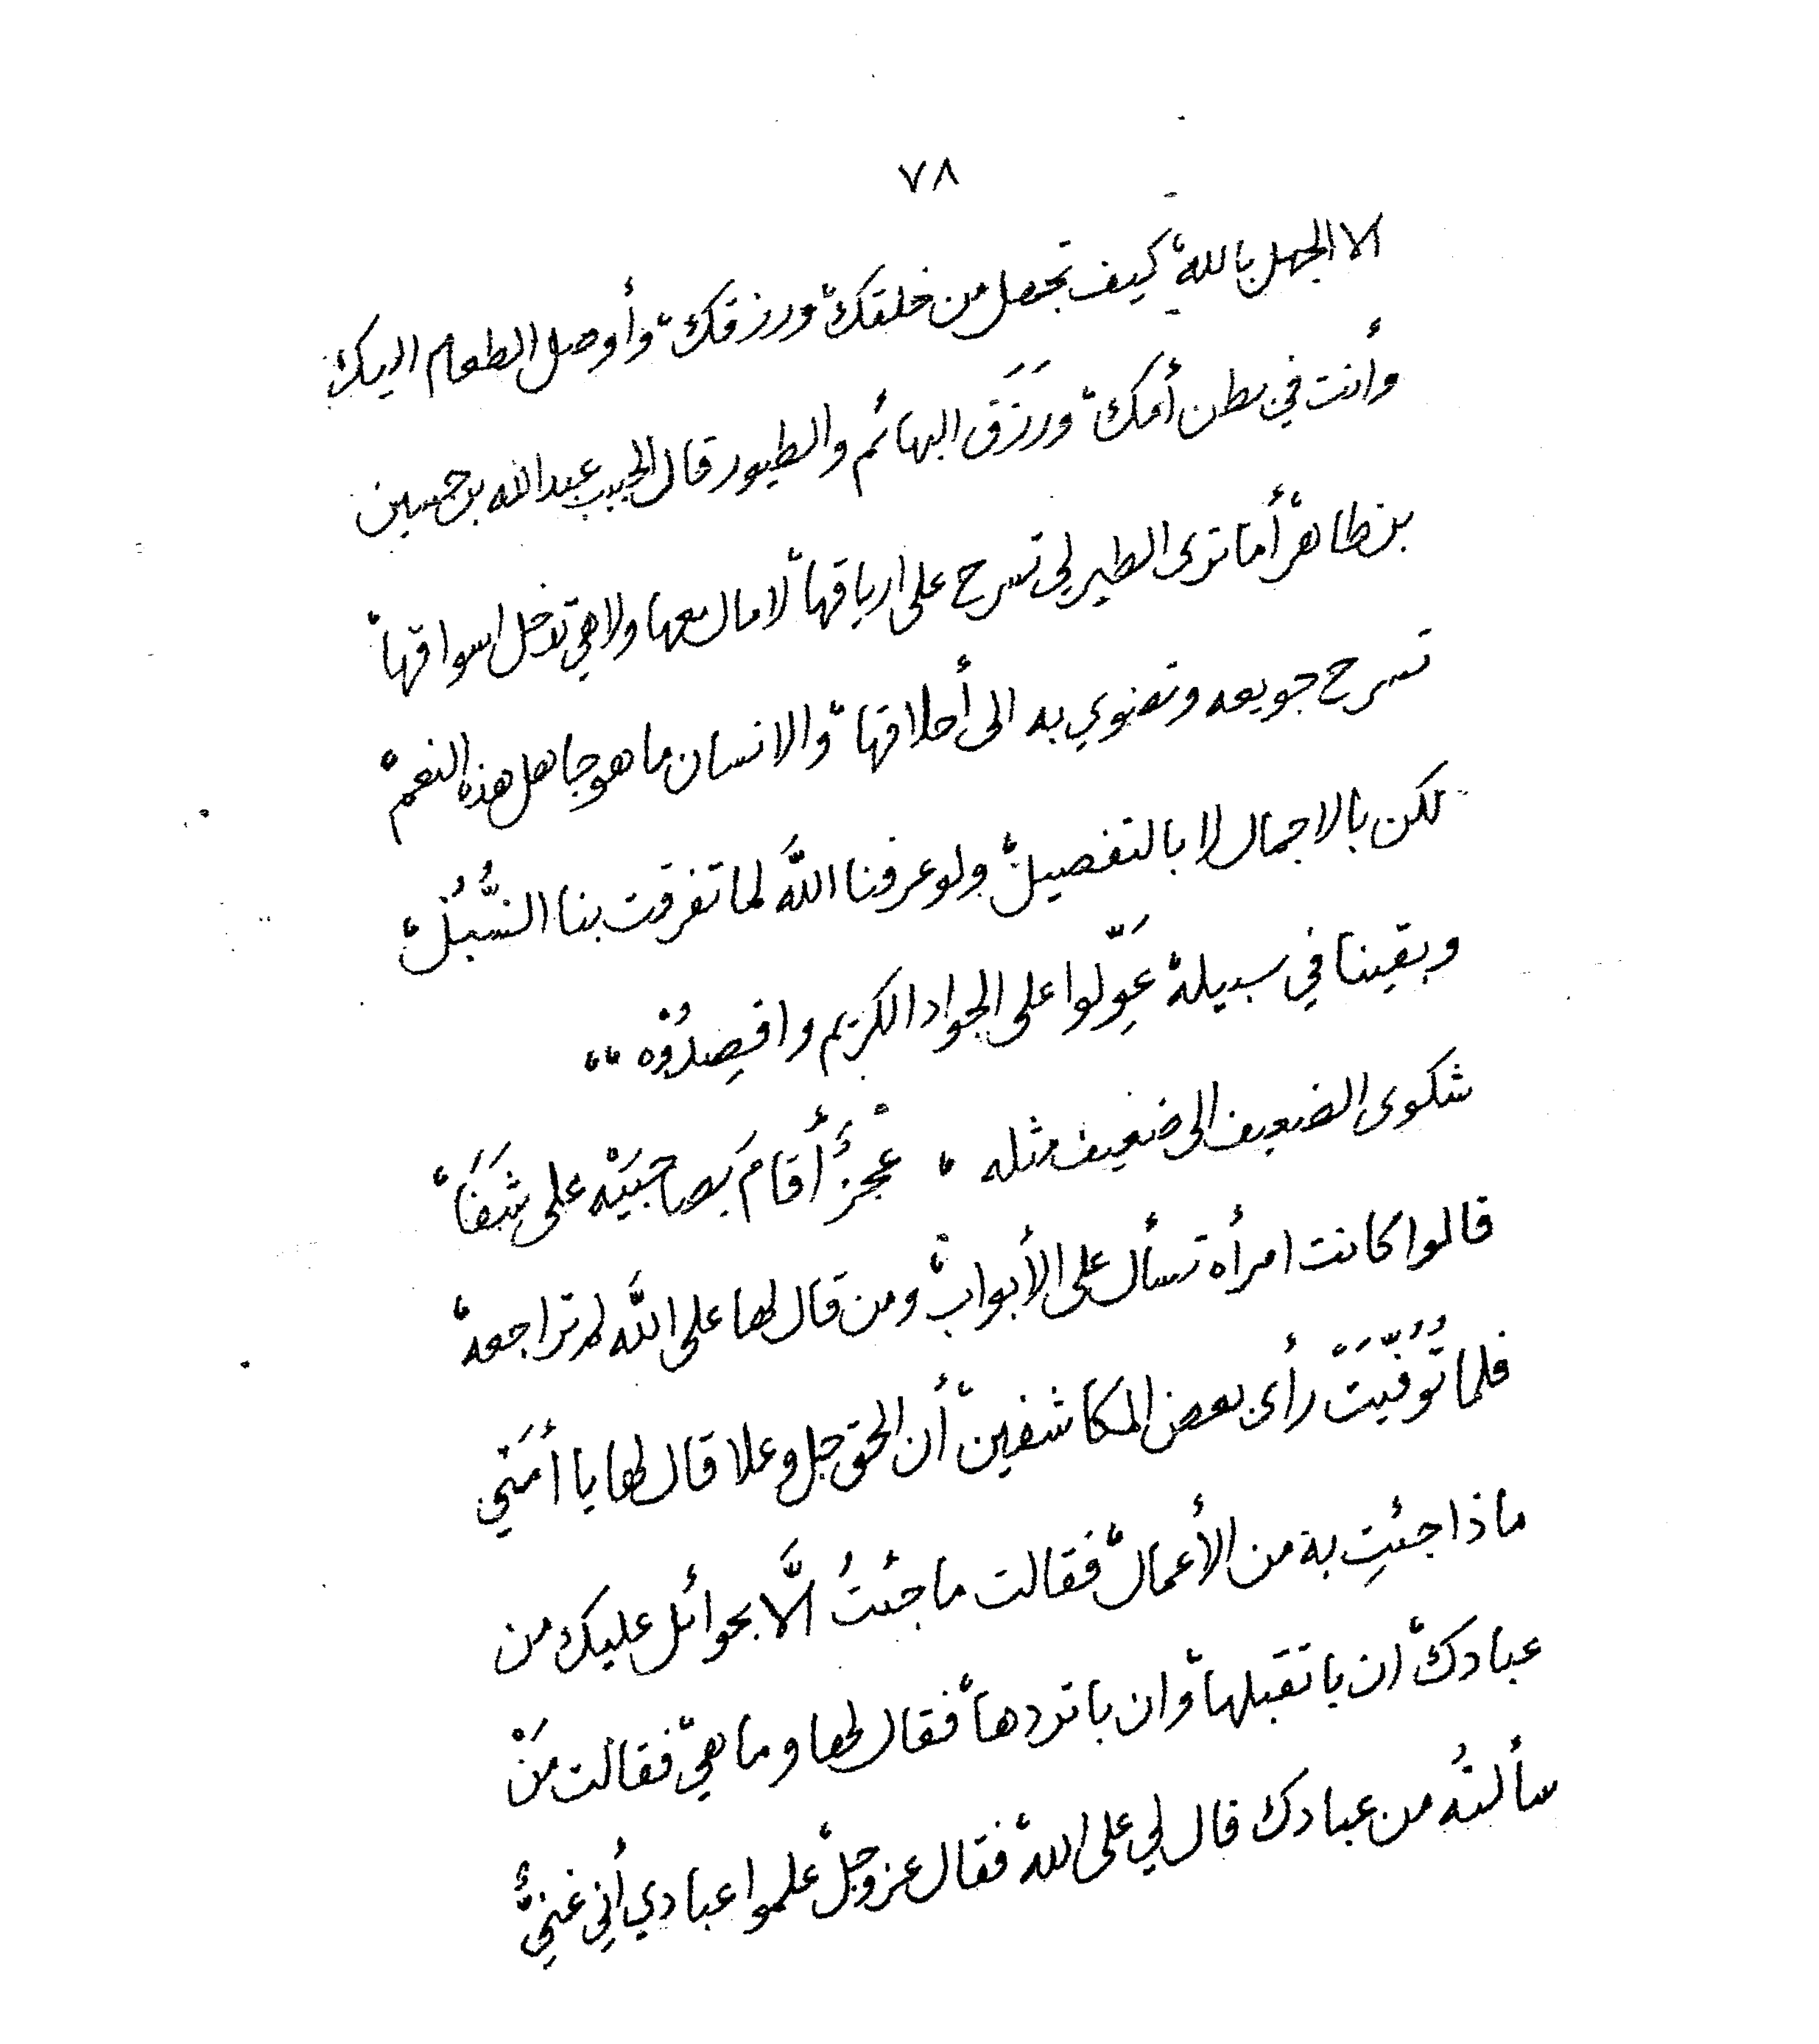 ٧٨
الا الجهل بالله، كيف تجهل من خلقك، ورزقك، وأوصل الطعام اليك
وأنت في بطن أمك، ورَزَق البهائم والطيور قال الحبيب عبدالله بن حسين
بن طاهر، أما ترى الطير لي تسرح على ارياقها، لا مال معها ولا هي تدخل اسواقها،
تسرح جويعه وتضوي به الى أحلاقها، والانسان ما هو جاهل هذه النعم،
لكن بالاجمال لا بالتفصيل، ولو عرفنا اللَّه لما تفرقت بنا السُّبُل،
وبقينا في سبيله، عَوِّلوا على الجواد الكريم واقصِدُوْه،،
شكوى الضعيف الى ضعيف مثله ، عْجزٌ أقامَ بصاحبَيْه على شَفَا،
قالوا كانت امرأه تسأل على الأبواب، ومن قال لها على اللَّه لم تراجعه،
فلما تُوُفِّيَتْ رأى بعض المكاشفين، أن الحق جل وعلا قال لها يا أمَتي
ماذا جئتِ به من الأعمال، فقالت ما جئتُ الَّا بحوائل عليك من
عبادك، ان با تقبلها، وان با تردها، فقال لها وما هي، فقالت مَنْ
سألتُه من عبادك قال لي على الله، فقال عز وجل، علموا عبادي أني غنيٌّ،